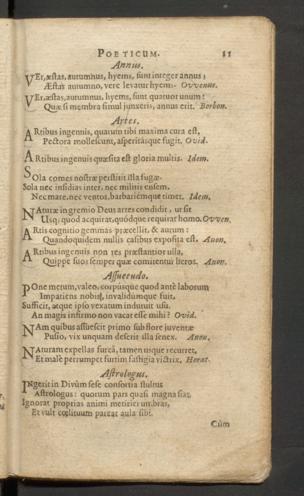 POETICUM. 81
Annus.
VEr, æstas, autumnus, hyems, sunt integer annus;
Æstas autumno, vere levatur hyems. Ovvenus.
VEr, æstas, autumnus, hyems, sunt quatuor unum:
Quæ si membra simul junxeris, annus erit. Borbon.
Artes.
ARtibus ingenuis, quarum tibi maxima cura est,
Pectora mollescunt, asperitasque fugit. Ovid.
ARtibus ingenuis quæsita est gloria multis. Idem.
SOla comes nostræ perstitit illa fugæ.
Sola nec insidias inter, nec militis ensem,
Nec mare, nec ventos, barbariemque timet. Idem.
NAturæ in gremio Deus artes condidit, ut sit
Usq; quod acquirat, quódque requirat homo. Ovven.
ARtis cognitio gemmas præcellit, & aurum:
Quandoquidem nullis casibus exposita est. Anon.
ARtibus ingenuis non res præstantior ulla,
Quippe suos semper quæ comitentur heros. Anon.
Assuetudo.
POne metum, valeo, corpúsque quod antè laborum
Impatiens nobis, invalidúmque fuit,
Sufficit, atque ipso vexatum induruit usu.
An magis infirmo non vacat esse mihi? Ovid.
NAm quibus assuescit primo sub flore juventæ
Pusio, vix unquam deserit illa senex. Anon.
NAturam expellas furcâ, tamen usque recurret,
Et male perrumpet furtim fastigia victrix. Horat.
Astrologus.
INgerit in Divûm sese consortia stultus
Astrologus: quorum pars quasi magna siat,
Ignorat proprias animi metirier umbras,
Et vult cœlituum pateat aula sibi.
Cùm